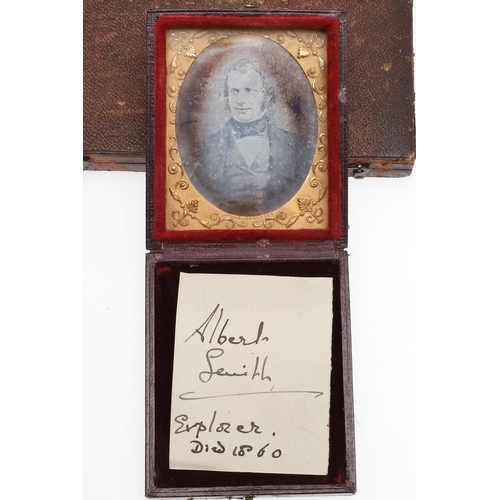 Albert
Smith
Explorer.
Died 1860